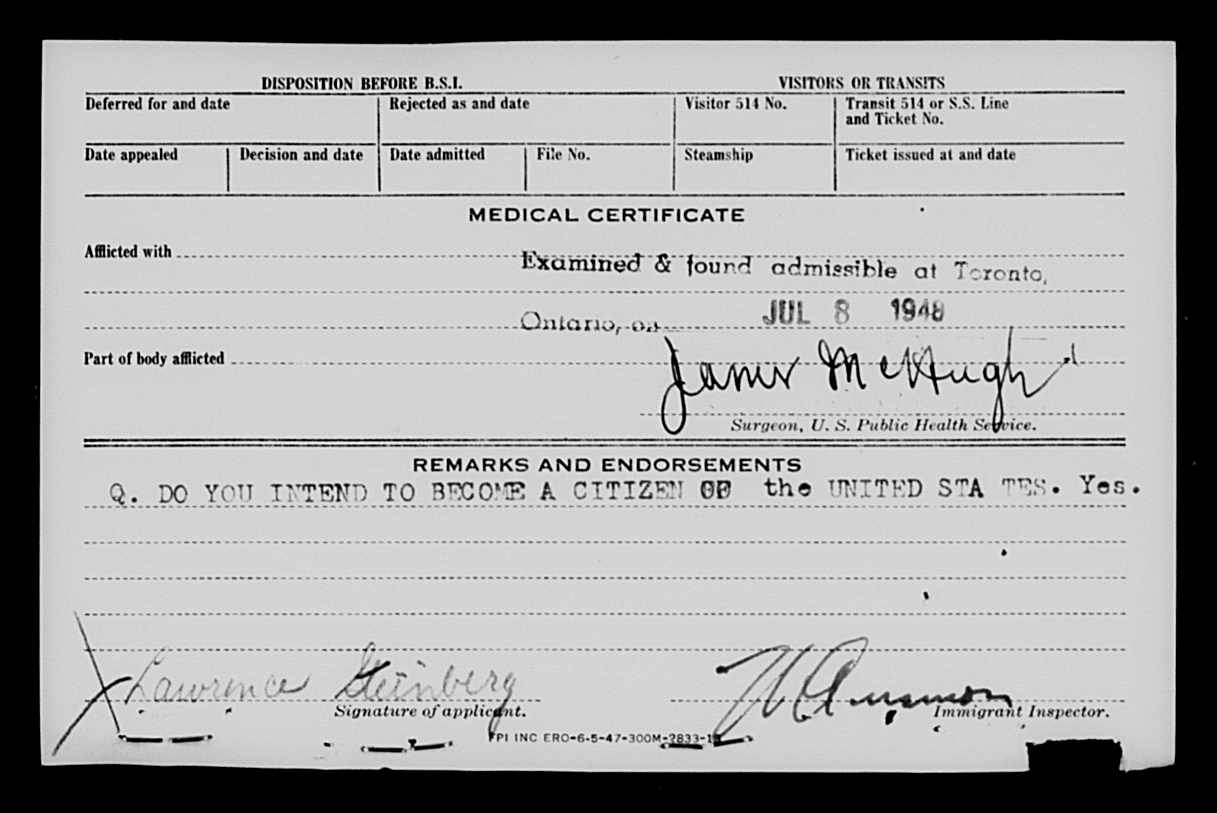 DISPOSITION BEFORE B.S.I. VISITORS OR TRANSITS
Deferred for and date Rejected as and date Visitor 514 No. Transit 514 or S.S. Line
and Ticket No.
Date appealed Decision and date Date admitted File No. Steamship Ticket issued at and date
MEDICAL CERTIFICATE
Afflicted with
Examined & found admissible at Toronto,
Ontario, on JUL 8 1948
Part of body afflicted
James McHugh
Surgeon, U. S. Public Health Service.
REMARKS AND ENDORSEMENTS
Q. DO YOU INTEND TO BECOME A CITIZEN OF the UNITED STA TES. Yes.
Lawrence Steinberg
Signature of applicant. Immigrant Inspector.
FPI INC ERO-6-5-47-300M-2833-